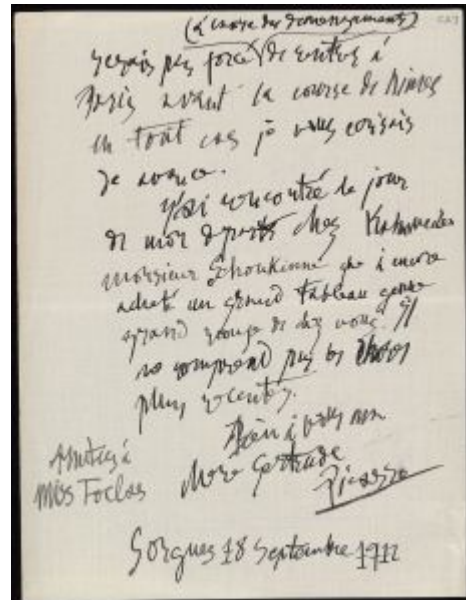 (à cause du demenagement)
serais pas forcé de rentrer à
Paris avant la course de Nimes
en tout cas je vous ecrirais
d avance.
J'ai rencontré le jour
de mon depart chez Kahnweiler
monsieur Schoukinne que à encore
acheté un grand tableau genre
grand rouge de chez vous. Il
ne comprend pas les choses
plus recentes.
Bien à vous ma
chere Gertrude
Picasso
Amities à
Miss Toclas
Sorgues 18 Septembre 1912